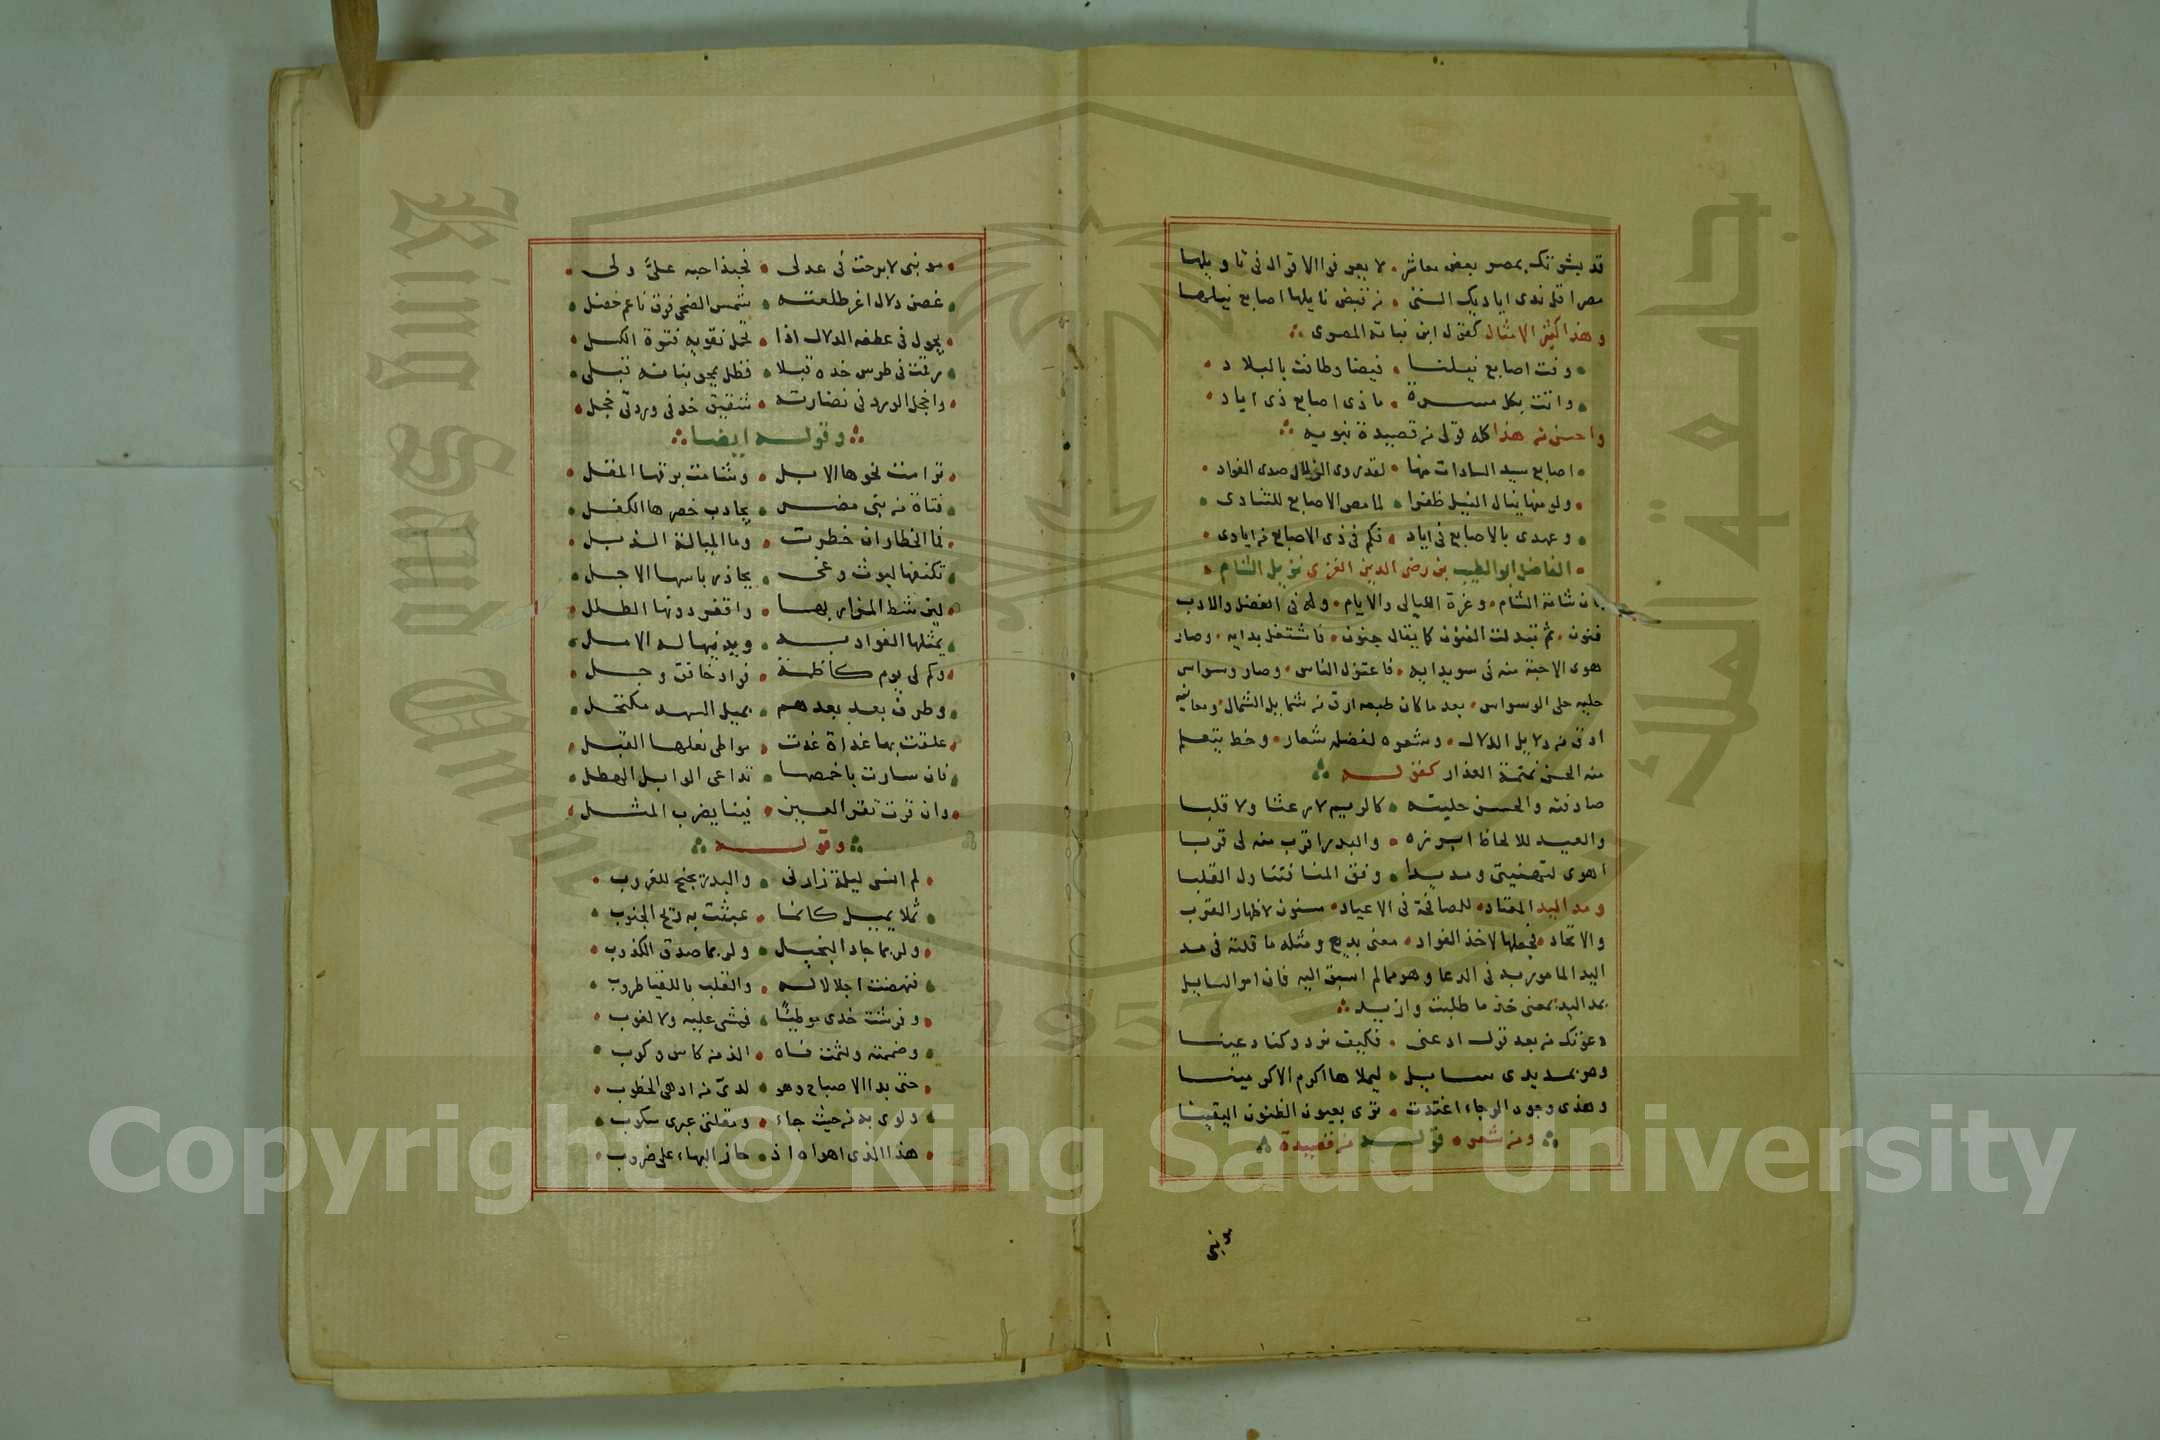 قد بشرتك بمصر بعض معاشر • لا يعرفوا الاقوال فى تاويلها
مصرا قلى ندى اياديك التى • من فيض نايلها اصابع نيلها
وهذا كثير الامثال كقول ابن نباتة المصرى
وفت اصابع نيلنا • فيضا وطافت بالبلاد
واتت بكل مسرة • ماذى اصابع ذى اياد
واحسن من هذا كله قولى من قصيدة نبويه
اصابع سيد السادات منها • لقد روى الزلال صدى الفواد
ولو منها ينال النيل ظفرا • لما مص الاصابع للتنادى
وعهدى بالاصابع فى اياد • فكم فى ذى الاصابع من ايادى
الفاضل ابو الطيب بن رضى الدين الغزى نزيل الشام
شامة الشام • وغرة الليالى والايام • وله فى الفضل والادب
فنون • ثم تبدلت الفنون كما يقال جنون • فاشتغل بدايه • وصار
هوى الاحبة منه فى سويدايه • فاعتزل الناس • وصار وسواس
حليه حلى الوسواس • بعد ما كان طبعه ارق من شمايل الشمال • ومعانيه
ادق من دلايل الدلال • وشعره لفضله شعار • وخط يتعلم
منه الحسن نمنمة العذار كقوله
صادفته والحسن حليته • كالريم لا رعثا ولا قلبا
والعيد للالحاظ ابرزه • والبدر اقرب منه لى قربا
اهوى لتهنيتى ومد يدا • وفق المنا فتناول القلبا
ومد اليد المعتاد • للمصافحة فى الاعياد • مسنون لاظهار القرب
والاتحاد • فجعلها لاخذ الفواد • معنى بديع ومثله ما قلته فى مد
اليد المامور به فى الدعا وهو مما لم اسبق اليه فان امر السايل
بمد اليد بمعنى خذ ما طلبت وازيد
دعوتك من بعد قول ادعنى • فكيف نرد وكنا دعينا
وهو بمد يدى سايل • ليملاها اكرم الاكرمينا
وهذى وجوه الرجاء اغتدت • ترى بعيون الظنون اليقينا
ومن شعره • قوله • من قصيدة
مونبى
مونبى لا برحت فى عذلى • فحبذا حبه علىّ ولى
غصن دلال اغر طلعته • شمس الضحى فوق ناعم خضل
يجول فى عطفه الدلال اذا • تحمل تقويه فتوة الكسل
رقمت فى طرس خده قبلا • فظل يمحى بنانه قبلى
واخجل الورد فى نضارته • شقيق خد فى وردتى خجل
وقوله ايضا
ترامت نحوها الابل • وشامت برقها المقل
فتاة من بنى مضر • يجاذب خصرها الكفل
فما الخطار ان خطرت • وما الميالة الذبل
تكنفها ليوث وغى • يحاذر باسها الاجل
لين شط المزار بها • واقفر دونها الطلل
يمثلها الفواد به • ويدنيها له الامل
وكم لى يوم كاظمة • فواد خافق وجل
وطرف بعد بعدهم • بميل السهد مكتحل
علقت بها غداة غدت • مواطى نعلها القبل
فان سارت باخمصها • تداعى الوابل الهطل
وان قرت تقر العين • فينا يضرب المثل
وقوله
لم انس ليلة زارنى • والبدر يجنح للغروب
ثملا يميل كانما • عبثت به ريح الجنوب
ولربما جاد البخيل • ولربما صدق الكذوب
فنهضت اجلالا له • والقلب باللقيا طروب
وفرشت خدى موطئًا • فمشى عليه ولا لغوب
وضممته ولثمت فاه • الذ من كاس وكوب
حتى بدا الاصباح وهو • لدى من ادهى الخطوب
ولوى به من حيث جاء • ومقلتى عبرى سكوب
هذا الذى اهواه اذ • حاز البهاء على ضروب
Copyright © King Saud University
King Saud University
جامعة الملك
1957